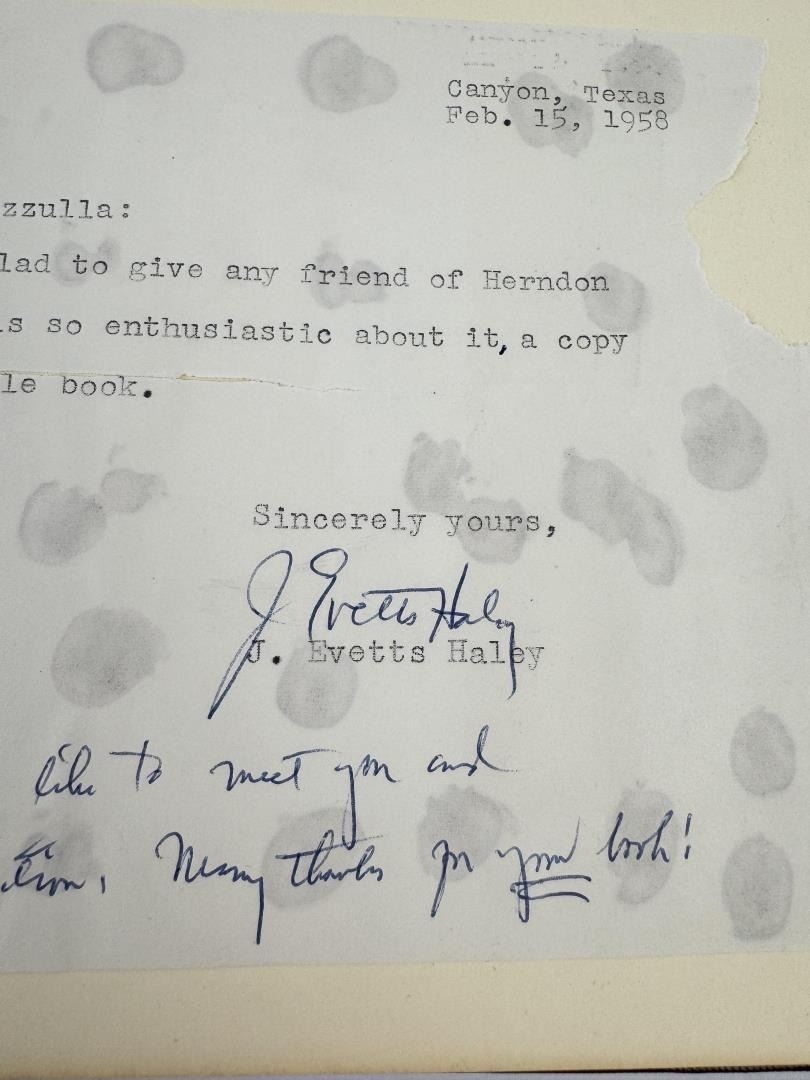 Canyon, Texas
Feb. 15, 1958
zzulla:
lad to give any friend of Herndon
is so enthusiastic about it, a copy
le book.
Sincerely yours,
J. Evetts Haley
J. Evetts Haley
like to meet you and
tion. Many thanks for your book!